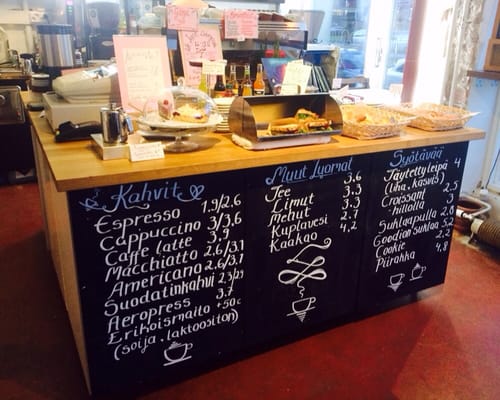 Kahvit
Espresso 1,9/2,6
Cappuccino 3/3,6
Caffe latte 3,9
Macchiatto 2,6/3,1
Americano 2,6/3,1
Suodatinkahvi 2,3/2,9
Aeropress 3,7
Erikoismaito +50c
(soija, laktoositon)
Muut Juomat
Tee 3,6
Limut 3,3
Mehut 3,3
Kuplavesi 2,7
Kaakao 4,2
Syötävää
Täytetty leipä 4
(liha, kasvis)
Croissant 2,5
-hillolla 3
Suklaapulla 2,8
Goodion suklaa 5,2
Cookie 2,3
Piirakka 4,8